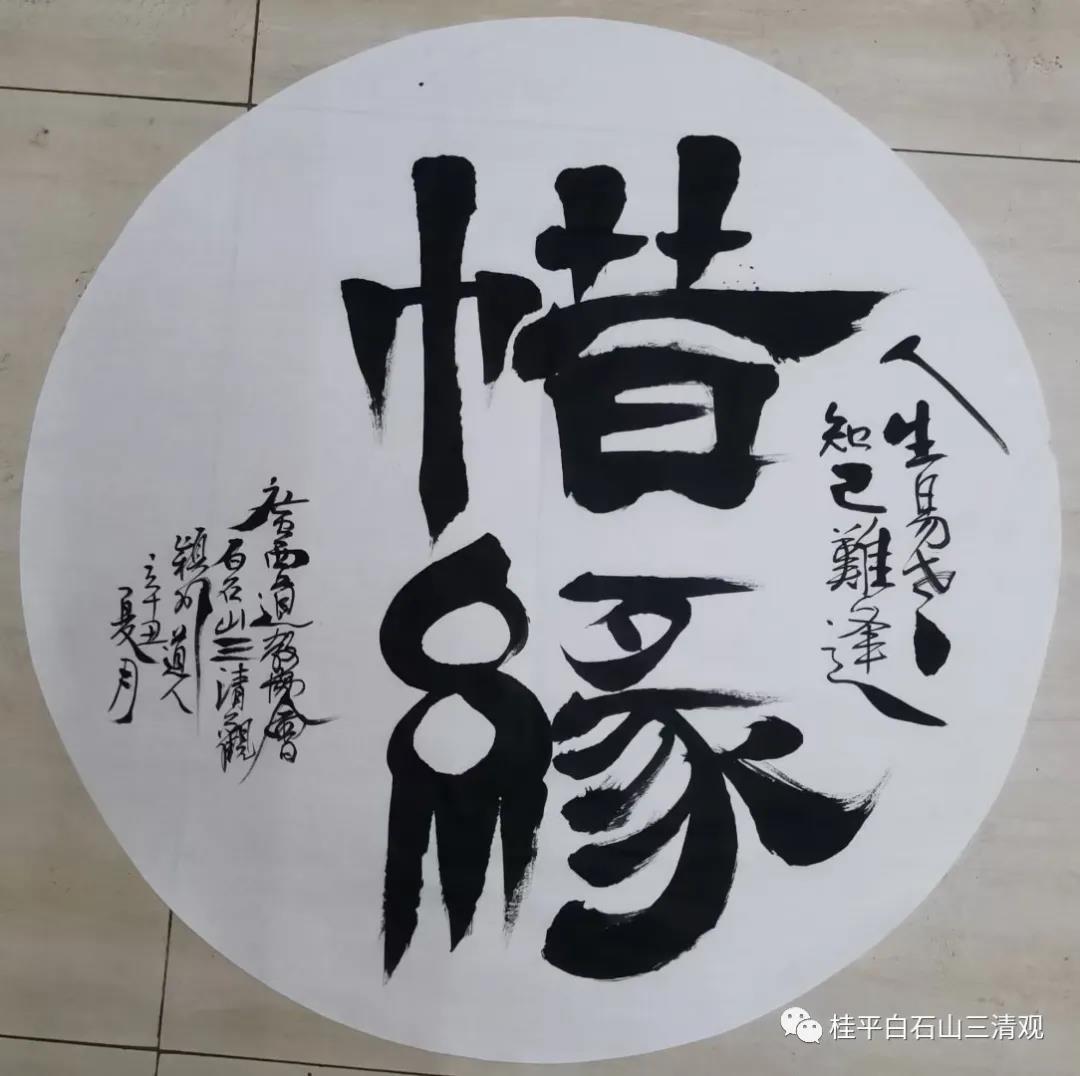 人生易老
知己難逢
惜緣
廣西道教協會
白石山三清觀
穎川道人
辛丑
夏月
桂平白石山三清观